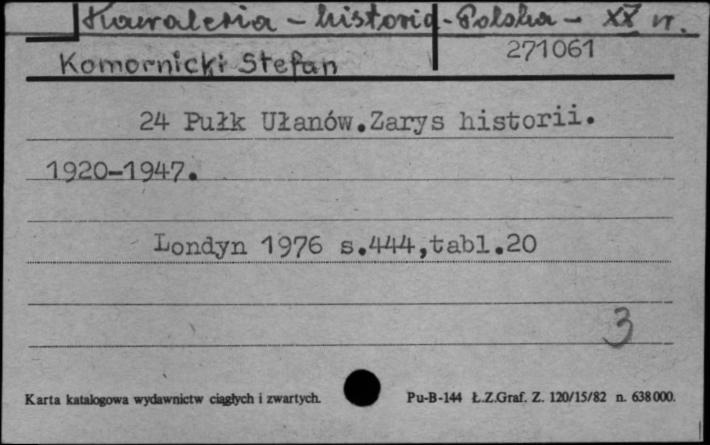 Kawaleria - historia - Polska - XX w.
Komornicki Stefan
271061
24 Pułk Ułanów.Zarys historii.
1920-1947.
Londyn 1976 s.444,tabl.20
3
Karta katalogowa wydawnictw ciągłych i zwartych.
Pu-B-144 Ł.Z.Graf. Z. 120/15/82 n. 638000.